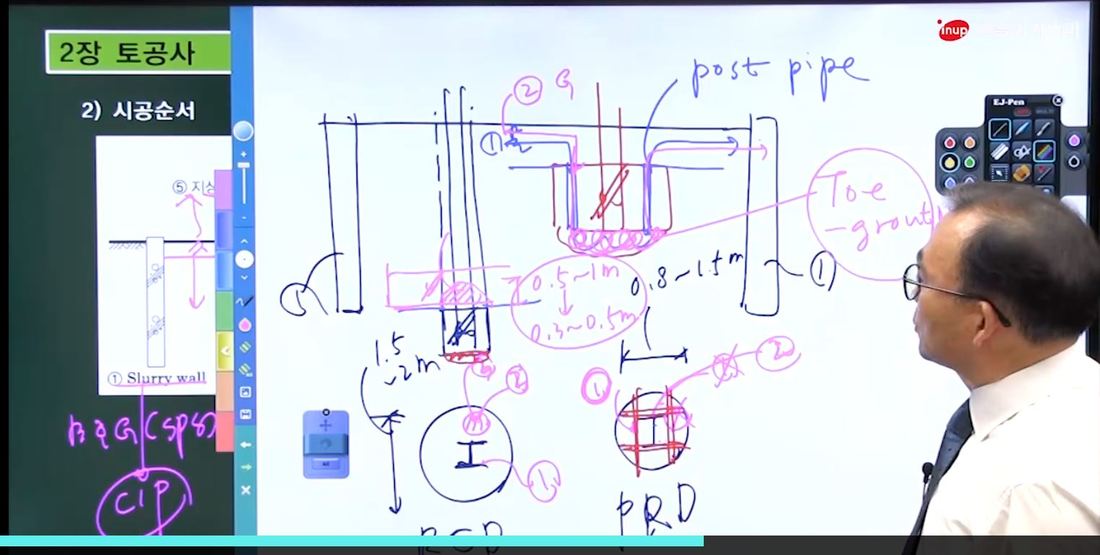 inup
2장 토공사
2) 시공순서
⑤ 지상
① Slurry wall
CIP
② G
①
post pipe
Toe
-grout
①
0.5~1m
↓
0.3~0.5m
0.8~1.5m
1.5
~2m
②
①
①
②
RCD
PRD
EJ-Pen